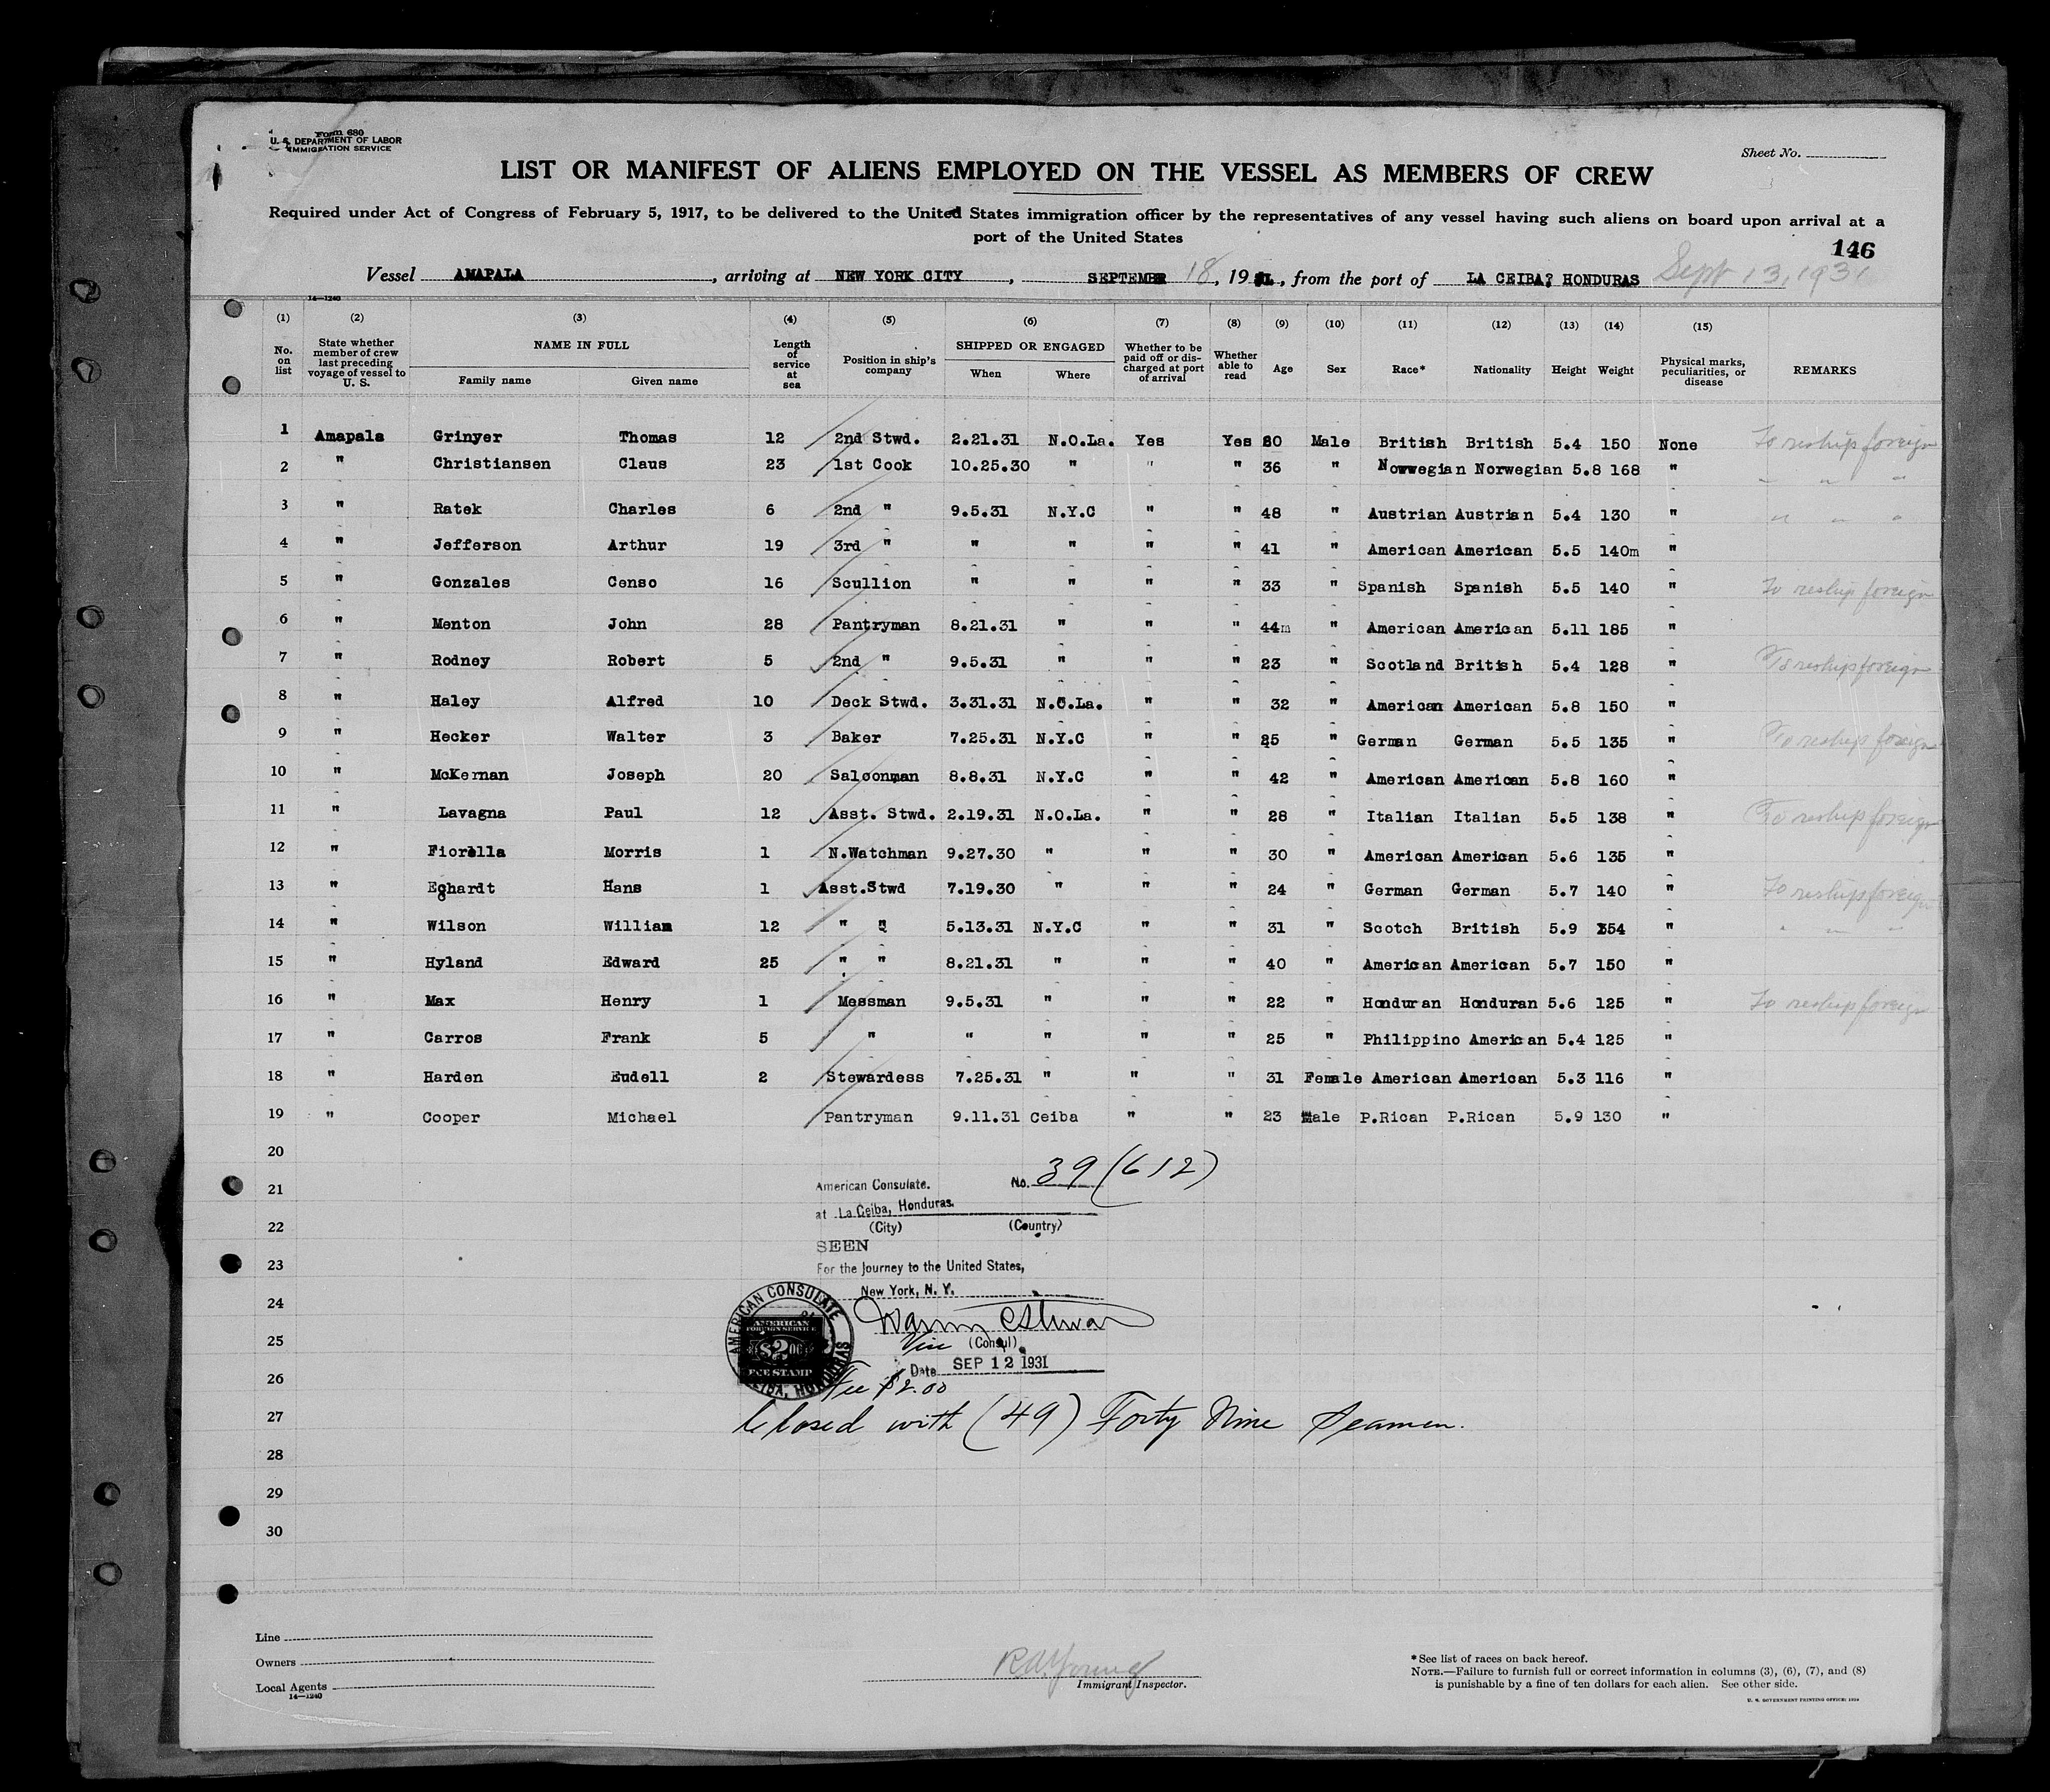 Form 680
U. S. DEPARTMENT OF LABOR
IMMIGRATION SERVICE
Sheet No.
LIST OR MANIFEST OF ALIENS EMPLOYED ON THE VESSEL AS MEMBERS OF CREW
Required under Act of Congress of February 5, 1917, to be delivered to the United States immigration officer by the representatives of any vessel having such aliens on board upon arrival at a
port of the United States
146
Vessel AMAPALA, arriving at NEW YORK CITY, SEPTEMBR 18, 1931, from the port of LA CEIBA? HONDURAS Sept 13, 1931
14—1240
(1) (2) (3) (4) (5) (6) (7) (8) (9) (10) (11) (12) (13) (14) (15)
No. on list | State whether member of crew last preceding voyage of vessel to U. S. | NAME IN FULL Family name Given name | Length of service at sea | Position in ship's company | SHIPPED OR ENGAGED When Where | Whether to be paid off or discharged at port of arrival | Whether able to read | Age | Sex | Race* | Nationality | Height | Weight | Physical marks, peculiarities, or disease | REMARKS
1 Amapala Grinyer Thomas 12 2nd Stwd. 2.21.31 N.O.La. Yes Yes Male British British 5.4 150 None To reship foreign
2 " Christiansen Claus 23 1st Cook 10.25.30 " " " 36 " Nowwegian Norwegian 5.8 168 " " " "
3 " Ratek Charles 6 2nd " 9.5.31 N.Y.C " " 48 " Austrian Austrian 5.4 130 " " " "
4 " Jefferson Arthur 19 3rd " " " " " 41 " American American 5.5 140m "
5 " Gonzales Censo 16 Scullion " " " " 33 " Spanish Spanish 5.5 140 " To reship foreign
6 " Menton John 28 Pantryman 8.21.31 " " " 44m " American American 5.11 185 "
7 " Rodney Robert 5 2nd " 9.5.31 " " " 23 " Scotland British 5.4 128 " To reship foreign
8 " Haley Alfred 10 Deck Stwd. 3.31.31 N.O.La. " " 32 " American American 5.8 150 "
9 " Hecker Walter 3 Baker 7.25.31 N.Y.C " " 25 " German German 5.5 135 " To reship foreign
10 " McKernan Joseph 20 Saloonman 8.8.31 N.Y.C " " 42 " American American 5.8 160 "
11 " Lavagna Paul 12 Asst. Stwd. 2.19.31 N.O.La. " " 28 " Italian Italian 5.5 138 " To reship foreign
12 " Fiorella Morris 1 N.Watchman 9.27.30 " " " 30 " American American 5.6 135 "
13 " Eghardt Hans 1 Asst.Stwd 7.19.30 " " " 24 " German German 5.7 140 " To reship foreign
14 " Wilson William 12 " " 5.13.31 N.Y.C " " 31 " Scotch British 5.9 154 " " " "
15 " Hyland Edward 25 " " 8.21.31 " " " 40 " American American 5.7 150 "
16 " Max Henry 1 Messman 9.5.31 " " " 22 " Honduran Honduran 5.6 125 " To reship foreign
17 " Carros Frank 5 " " " " " 25 " Philippino American 5.4 125 "
18 " Harden Eudell 2 Stewardess 7.25.31 " " " 31 Female American American 5.3 116 "
19 " Cooper Michael Pantryman 9.11.31 Ceiba " " 23 Male P.Rican P.Rican 5.9 130 "
20
21
22
23
24
25
26
27
28
29
30
American Consulate. No. 39 (612)
at La Ceiba, Honduras.
(City) (Country)
SEEN
For the Journey to the United States,
New York, N. Y.
Vice (Consul)
Date SEP 12 1931
AMERICAN CONSULATE
CEIBA, HONDURAS
AMERICAN
FOREIGN SERVICE
$2.00
FEE STAMP
Fee $2.00
Closed with (49) Forty Nine Seamen.
Line
Owners
Local Agents
14—1240
R.A. Young
Immigrant Inspector.
* See list of races on back hereof.
NOTE.—Failure to furnish full or correct information in columns (3), (6), (7), and (8)
is punishable by a fine of ten dollars for each alien. See other side.
U. S. GOVERNMENT PRINTING OFFICE: 1930